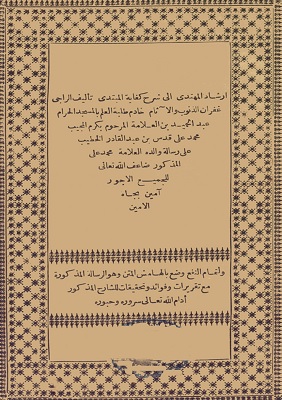 ارشاد المهتدى الى شرح كفاية المبتدى تأليف الراجى
غفران الذنوب والآثام خادم طلبة العلم بالمسجد الحرام
عبد الحميد بن العلامة المرحوم بكرم المجيب
محمد على قدس بن عبد القادر الخطيب
على رسالة والده العلامة محمد على
المذكور ضاعف الله تعالى
للجميع الاجور
آمين بجاه
الامين
ولتمام النفع وضع بالهامش المتن وهو الرسالة المذكورة
مع تقريرات وفوائد وتحقيقات للشارح المذكور
أدام الله تعالى سروره وحبوره